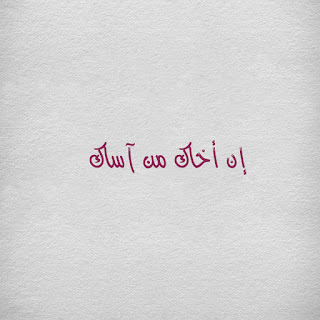 إن أخاك من آساك